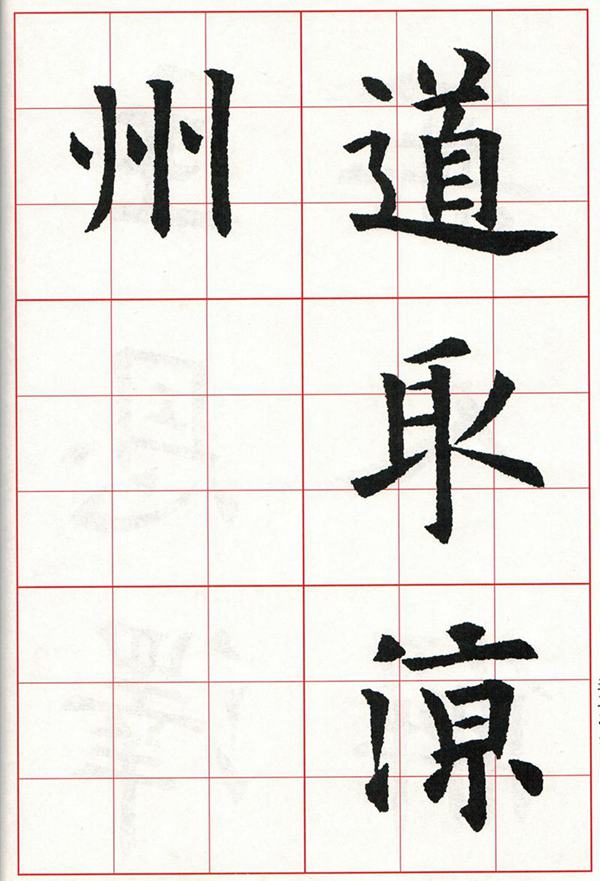 道取凉
州